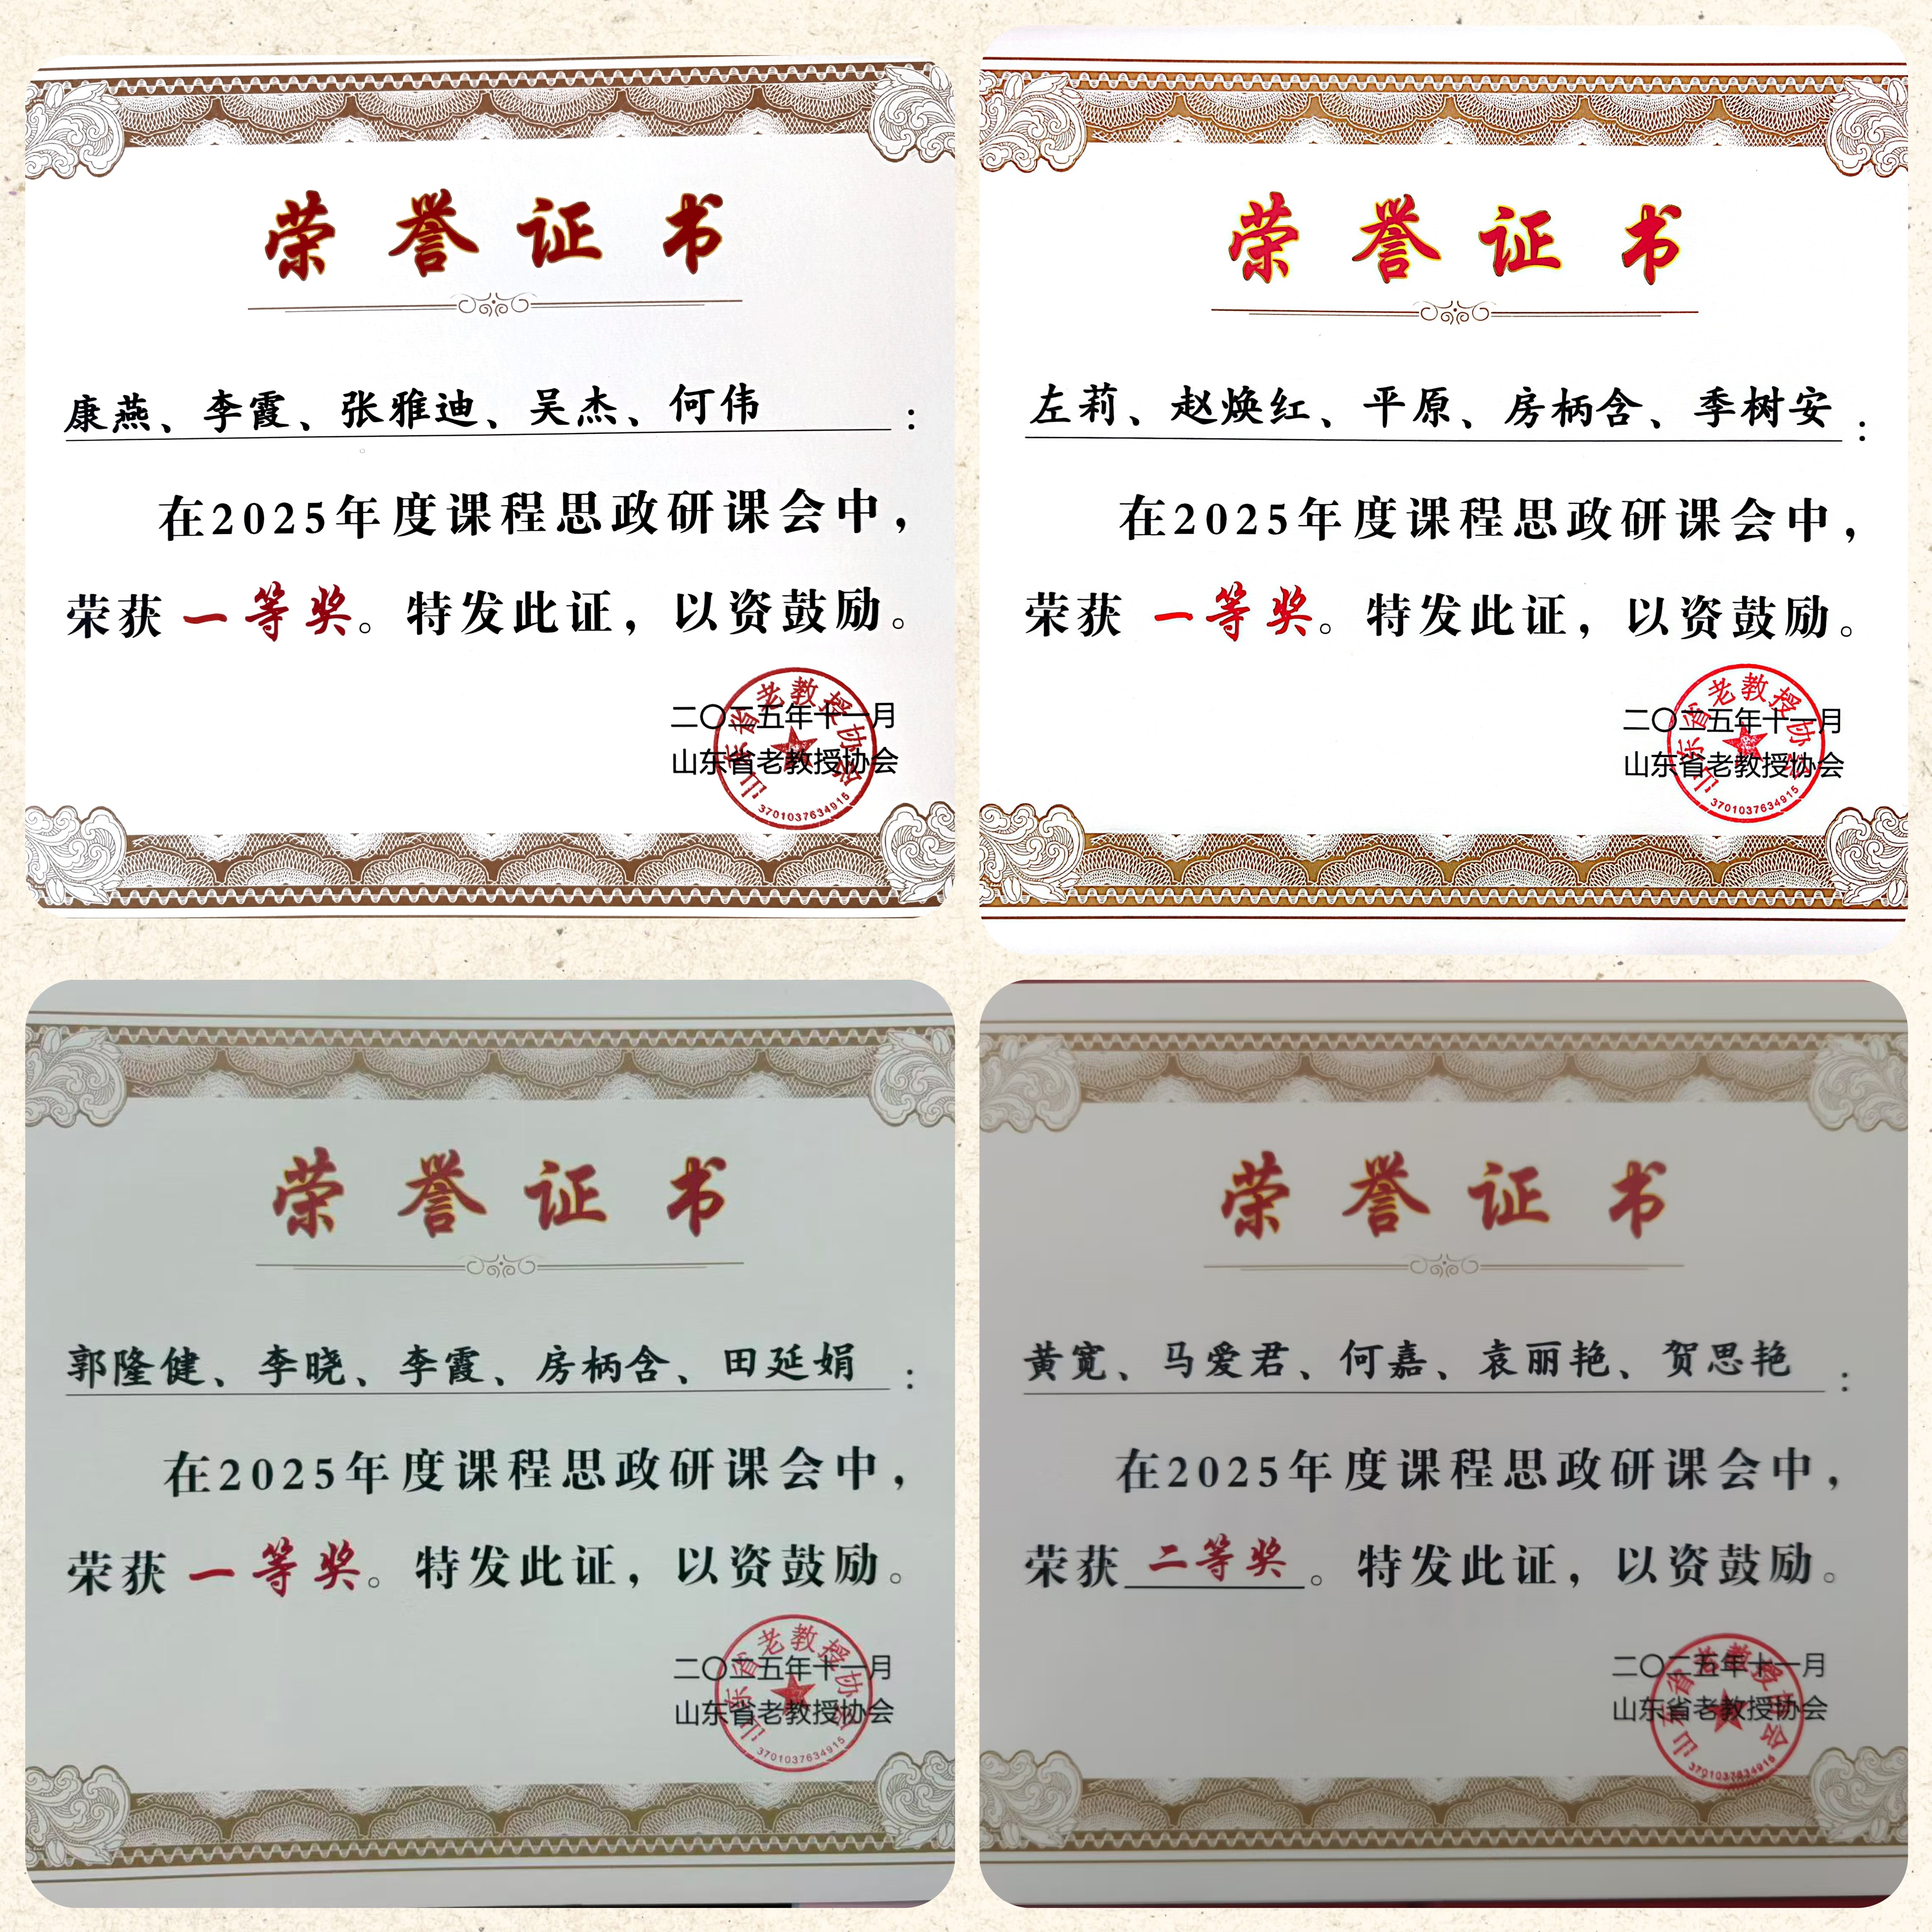 荣誉证书
康燕、李霞、张雅迪、吴杰、何伟：
在2025年度课程思政研课会中，
荣获 一等奖。特发此证，以资鼓励。
二〇二五年十一月
山东省老教授协会
山东省老教授协会
3701037634915
荣誉证书
左莉、赵焕红、平原、房柄含、季树安：
在2025年度课程思政研课会中，
荣获 一等奖。特发此证，以资鼓励。
二〇二五年十一月
山东省老教授协会
山东省老教授协会
3701037634915
荣誉证书
郭隆健、李晓、李霞、房柄含、田延娟：
在2025年度课程思政研课会中，
荣获 一等奖。特发此证，以资鼓励。
二〇二五年十一月
山东省老教授协会
山东省老教授协会
3701037634915
荣誉证书
黄宽、马爱君、何嘉、袁丽艳、贺思艳：
在2025年度课程思政研课会中，
荣获 二等奖。特发此证，以资鼓励。
二〇二五年十一月
山东省老教授协会
山东省老教授协会
3701037634915